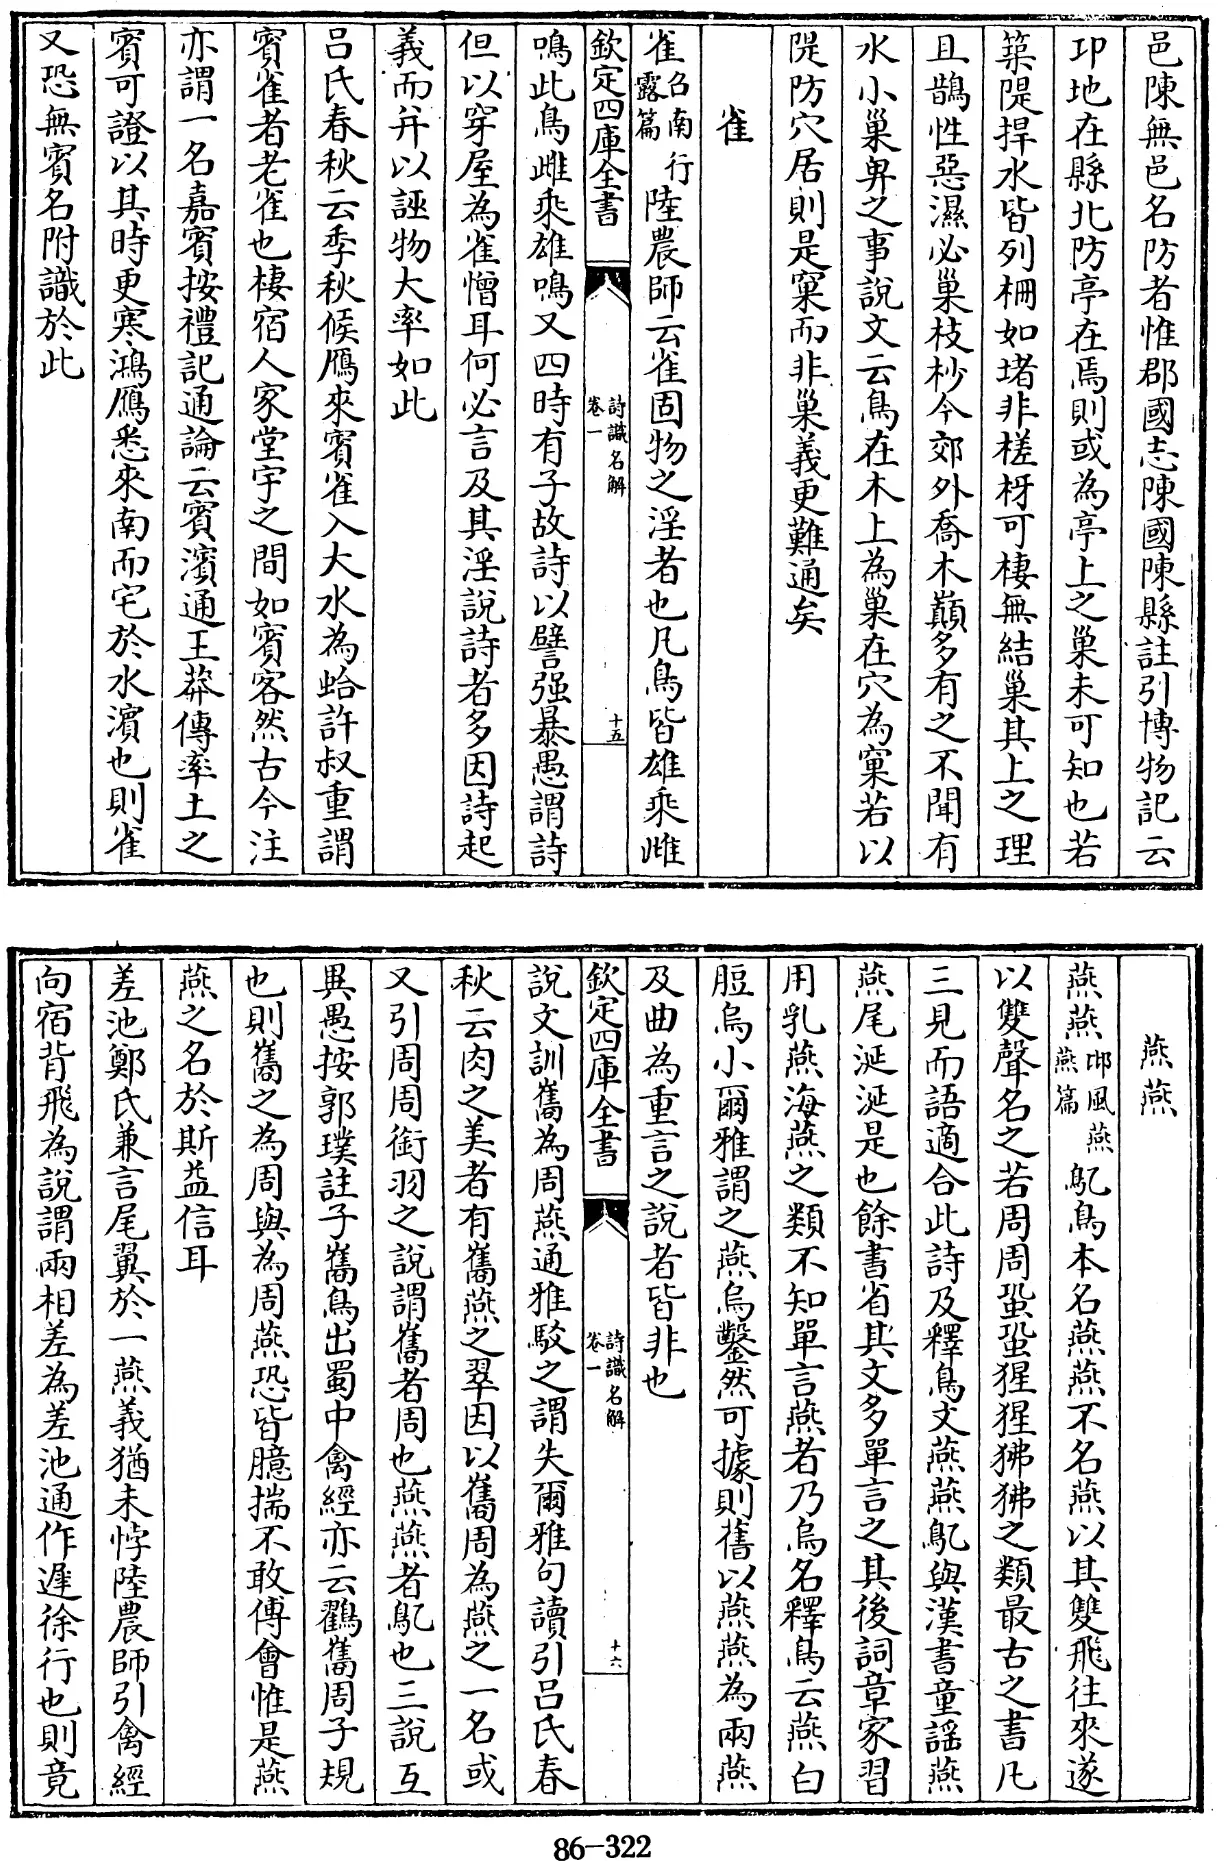 邑陳無邑名防者惟郡國志陳國陳縣註引博物記云
邛地在縣北防亭在焉則或為亭上之巢未可知也若
築隄捍水皆列柵如堵非槎枒可棲無結巢其上之理
且鵲性惡濕必巢枝杪今郊外喬木巔多有之不聞有
水小巢𢌿之事說文云鳥在木上為巢在穴為窠若以
隄防穴居則是窠而非巢義更難通矣
雀
雀召南行露篇陸農師云雀固物之淫者也凡鳥皆雄乘雌
欽定四庫全書 詩識名解 卷一 十五
鳴此鳥雌乘雄鳴又四時有子故詩以譬强暴愚謂詩
但以穿屋為雀憎耳何必言及其淫說詩者多因詩起
義而并以誣物大率如此
呂氏春秋云季秋候鴈來賓雀入大水為蛤許叔重謂
賓雀者老雀也棲宿人家堂宇之間如賓客然古今注
亦謂一名嘉賓按禮記通論云賓濱通王莽傳率土之
賓可證以其時更寒鴻鴈悉來南而宅於水濱也則雀
又恐無賓名附識於此
燕燕
燕燕邶風燕燕篇鳦鳥本名燕燕不名燕以其雙飛往來遂
以雙聲名之若周周蛩蛩猩猩狒狒之類最古之書凡
三見而語適合此詩及釋鳥文燕燕鳦與漢書童謡燕
燕尾涎涎是也餘書省其文多單言之其後詞章家習
用乳燕海燕之類不知單言燕者乃烏名釋鳥云燕白
脰烏小爾雅謂之燕烏鑿然可據則舊以燕燕為兩燕
及曲為重言之說者皆非也
欽定四庫全書 詩識名解 卷一 十六
說文訓巂為周燕通雅駁之謂失爾雅句讀引呂氏春
秋云肉之美者有巂燕之翠因以巂周為燕之一名或
又引周周銜羽之說謂巂者周也燕燕者鳦也三說互
異愚按郭璞註子巂鳥出蜀中禽經亦云鸛巂周子規
也則巂之為周與為周燕恐皆臆揣不敢傅會惟是燕
燕之名於斯益信耳
差池鄭氏兼言尾翼於一燕義猶未悖陸農師引禽經
向宿背飛為說謂兩相差為差池通作遲徐行也則竟
86-322